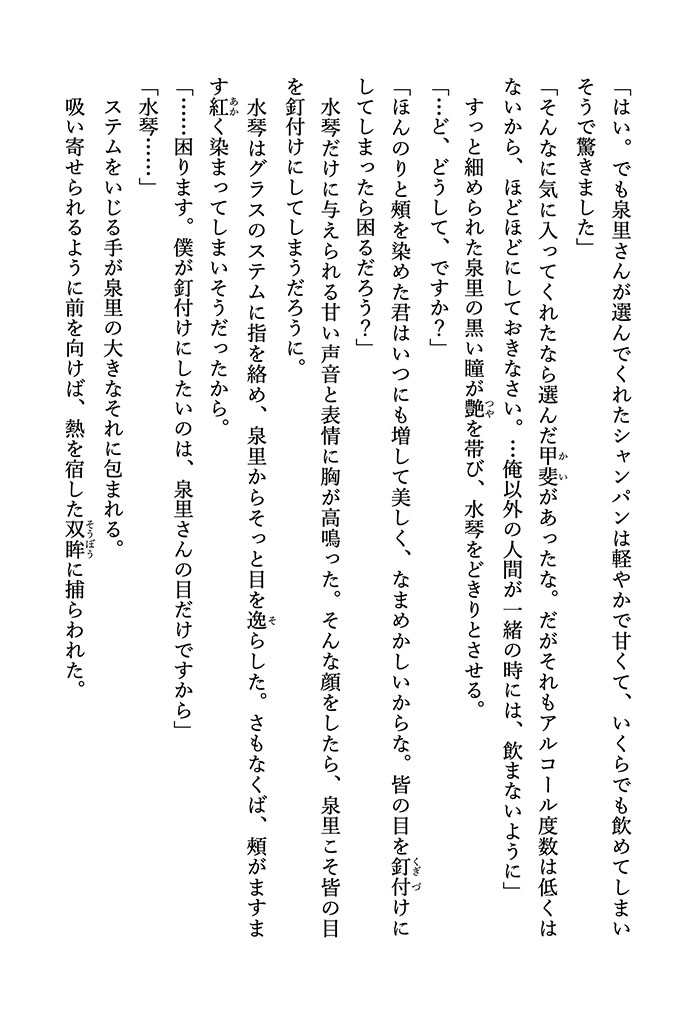 「はい。でも泉里さんが選んでくれたシャンパンは軽やかで甘くて、いくらでも飲めてしまい
そうで驚きました」
「そんなに気に入ってくれたなら選んだ甲斐かいがあったな。だがそれもアルコール度数は低くは
ないから、ほどほどにしておきなさい。…俺以外の人間が一緒の時には、飲まないように」
すっと細められた泉里の黒い瞳が艶つやを帯び、水琴をどきりとさせる。
「…ど、どうして、ですか？」
「ほんのりと頰を染めた君はいつにも増して美しく、なまめかしいからな。皆の目を釘付くぎづけに
してしまったら困るだろう？」
水琴だけに与えられる甘い声音と表情に胸が高鳴った。そんな顔をしたら、泉里こそ皆の目
を釘付けにしてしまうだろうに。
水琴はグラスのステムに指を絡め、泉里からそっと目を逸そらした。さもなくば、頰がますま
す紅あかく染まってしまいそうだったから。
「……困ります。僕が釘付けにしたいのは、泉里さんの目だけですから」
「水琴……」
ステムをいじる手が泉里の大きなそれに包まれる。
吸い寄せられるように前を向けば、熱を宿した双眸そうぼうに捕らわれた。